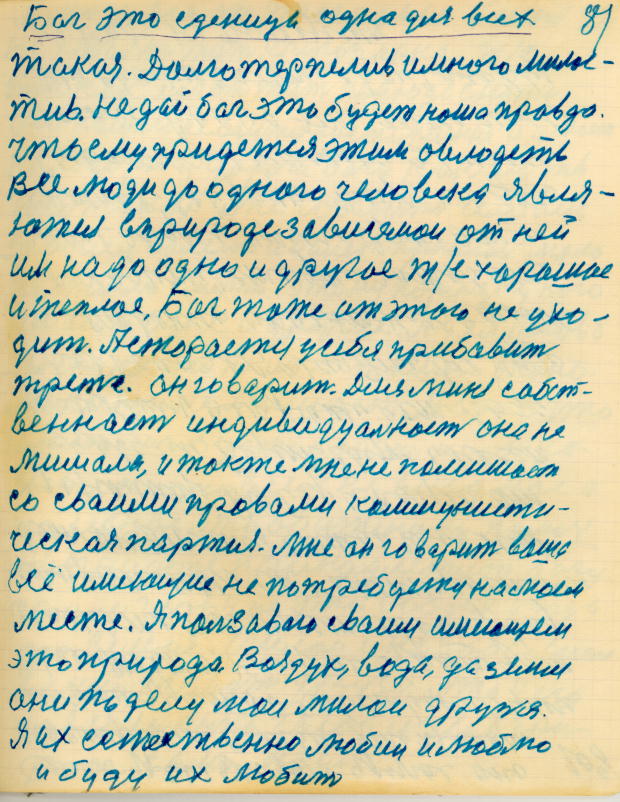 Бог это еденица одна для всех 8)
такая. Долготерпелив и много милос-
тив. не дай бог это будет ноша правдо.
что ему придется этим овлодеть
все люди до одного человека явля-
ются в природе зависемои от ней
им надо одно и другое т/е хорошое
и теплое, Бог тоже от этого не ухо-
дит. А сторается у себя прибавит
трете. он говарит. Для миня собст-
веннаст индивидуалност она не
мишала, и также мне не помишает
со сваими провами коммунисти-
ческая партия. Мне он говарит ваша
всё имеющие не потребуется на моем
месте. Я ползаваю сваим имиющем
это природа. Воздух, вода, да земля
они по делу мои милои друзя.
Я их сетественно любил и люблю
и буду их любит